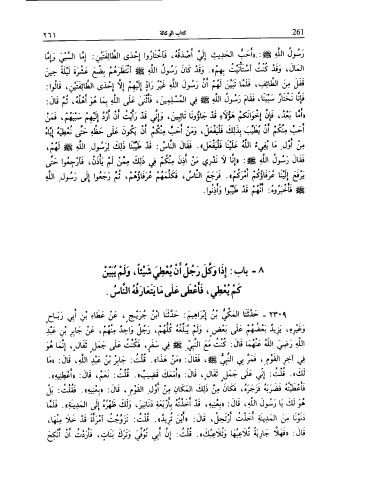 ٢٦١ كتاب الوكالة 261
رَسُولُ اللَّهِ ﷺ: «أَحَبُّ الْحَدِيثِ إِلَيَّ أَصْدَقُهُ، فَاخْتَارُوا إِحْدَى الطَّائِفَتَيْنِ: إِمَّا السَّبْيَ وَإِمَّا
الْمَالَ، وَقَدْ كُنْتُ اسْتَأْنَيْتُ بِهِمْ». وَقَدْ كَانَ رَسُولُ اللَّهِ ﷺ انْتَظَرَهُمْ بِضْعَ عَشْرَةَ لَيْلَةً حِينَ
قَفَلَ مِنَ الطَّائِفِ، فَلَمَّا تَبَيَّنَ لَهُمْ أَنَّ رَسُولَ اللَّهِ ﷺ غَيْرُ رَادٍّ إِلَيْهِمْ إِلَّا إِحْدَى الطَّائِفَتَيْنِ، قَالُوا:
فَإِنَّا نَخْتَارُ سَبْيَنَا، فَقَامَ رَسُولُ اللَّهِ ﷺ فِي الْمُسْلِمِينَ، فَأَثْنَى عَلَى اللَّهِ بِمَا هُوَ أَهْلُهُ، ثُمَّ قَالَ:
«أَمَّا بَعْدُ، فَإِنَّ إِخْوَانَكُمْ هَؤُلَاءِ قَدْ جَاؤُونَا تَائِبِينَ، وَإِنِّي قَدْ رَأَيْتُ أَنْ أَرُدَّ إِلَيْهِمْ سَبْيَهُمْ، فَمَنْ
أَحَبَّ مِنْكُمْ أَنْ يُطَيِّبَ بِذَلِكَ فَلْيَفْعَلْ، وَمَنْ أَحَبَّ مِنْكُمْ أَنْ يَكُونَ عَلَى حَظِّهِ حَتَّى نُعْطِيَهُ إِيَّاهُ
مِنْ أَوَّلِ مَا يُفِيءُ اللَّهُ عَلَيْنَا فَلْيَفْعَلْ». فَقَالَ النَّاسُ: قَدْ طَيَّبْنَا ذَلِكَ لِرَسُولِ اللَّهِ ﷺ لَهُمْ،
فَقَالَ رَسُولُ اللَّهِ ﷺ: «إِنَّا لَا نَدْرِي مَنْ أَذِنَ مِنْكُمْ فِي ذَلِكَ مِمَّنْ لَمْ يَأْذَنْ، فَارْجِعُوا حَتَّى
يَرْفَعَ إِلَيْنَا عُرَفَاؤُكُمْ أَمْرَكُمْ». فَرَجَعَ النَّاسُ، فَكَلَّمَهُمْ عُرَفَاؤُهُمْ، ثُمَّ رَجَعُوا إِلَى رَسُولِ اللَّهِ
ﷺ فَأَخْبَرُوهُ: أَنَّهُمْ قَدْ طَيَّبُوا وَأَذِنُوا.
٨ - باب: إِذَا وَكَّلَ رَجُلٌ أَنْ يُعْطِيَ شَيْئًا، وَلَمْ يُبَيِّنْ
كَمْ يُعْطِي، فَأَعْطَى عَلَى مَا يَتَعَارَفُهُ النَّاسُ.
٢٣٠٩ - حَدَّثَنَا الْمَكِّيُّ بْنُ إِبْرَاهِيمَ: حَدَّثَنَا ابْنُ جُرَيْجٍ، عَنْ عَطَاءِ بْنِ أَبِي رَبَاحٍ
وَغَيْرِهِ، يَزِيدُ بَعْضُهُمْ عَلَى بَعْضٍ، وَلَمْ يُبَلِّغْهُ كُلُّهُمْ، رَجُلٌ وَاحِدٌ مِنْهُمْ، عَنْ جَابِرِ بْنِ عَبْدِ
اللَّهِ رَضِيَ اللَّهُ عَنْهُمَا قَالَ: كُنْتُ مَعَ النَّبِيِّ ﷺ فِي سَفَرٍ، فَكُنْتُ عَلَى جَمَلٍ ثَفَالٍ، إِنَّمَا هُوَ
فِي آخِرِ الْقَوْمِ، فَمَرَّ بِي النَّبِيُّ ﷺ، فَقَالَ: «مَنْ هَذَا». قُلْتُ: جَابِرُ بْنُ عَبْدِ اللَّهِ، قَالَ: «مَا
لَكَ». قُلْتُ: إِنِّي عَلَى جَمَلٍ ثَفَالٍ، قَالَ: «أَمَعَكَ قَضِيبٌ». قُلْتُ: نَعَمْ، قَالَ: «أَعْطِنِيهِ».
فَأَعْطَيْتُهُ فَضَرَبَهُ فَزَجَرَهُ، فَكَانَ مِنْ ذَلِكَ الْمَكَانِ مِنْ أَوَّلِ الْقَوْمِ، قَالَ: «بِعْنِيهِ». فَقُلْتُ: بَلْ
هُوَ لَكَ يَا رَسُولَ اللَّهِ، قَالَ: «بِعْنِيهِ، قَدْ أَخَذْتُهُ بِأَرْبَعَةِ دَنَانِيرَ، وَلَكَ ظَهْرُهُ إِلَى الْمَدِينَةِ». فَلَمَّا
دَنَوْنَا مِنَ الْمَدِينَةِ أَخَذْتُ أَرْتَحِلُ، قَالَ: «أَيْنَ تُرِيدُ». قُلْتُ: تَزَوَّجْتُ امْرَأَةً قَدْ خَلَا مِنْهَا،
قَالَ: «فَهَلَّا جَارِيَةً تُلَاعِبُهَا وَتُلَاعِبُكَ». قُلْتُ: إِنَّ أَبِي تُوُفِّيَ وَتَرَكَ بَنَاتٍ، فَأَرَدْتُ أَنْ أَنْكِحَ